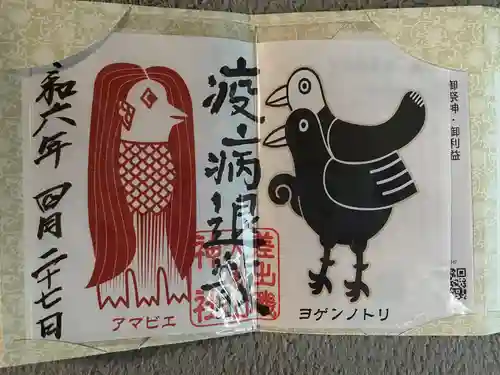 御祭神・御利益
ヨゲンノトリ
疫病退散
差出磯
アマビエ
和六年 四月二十七日